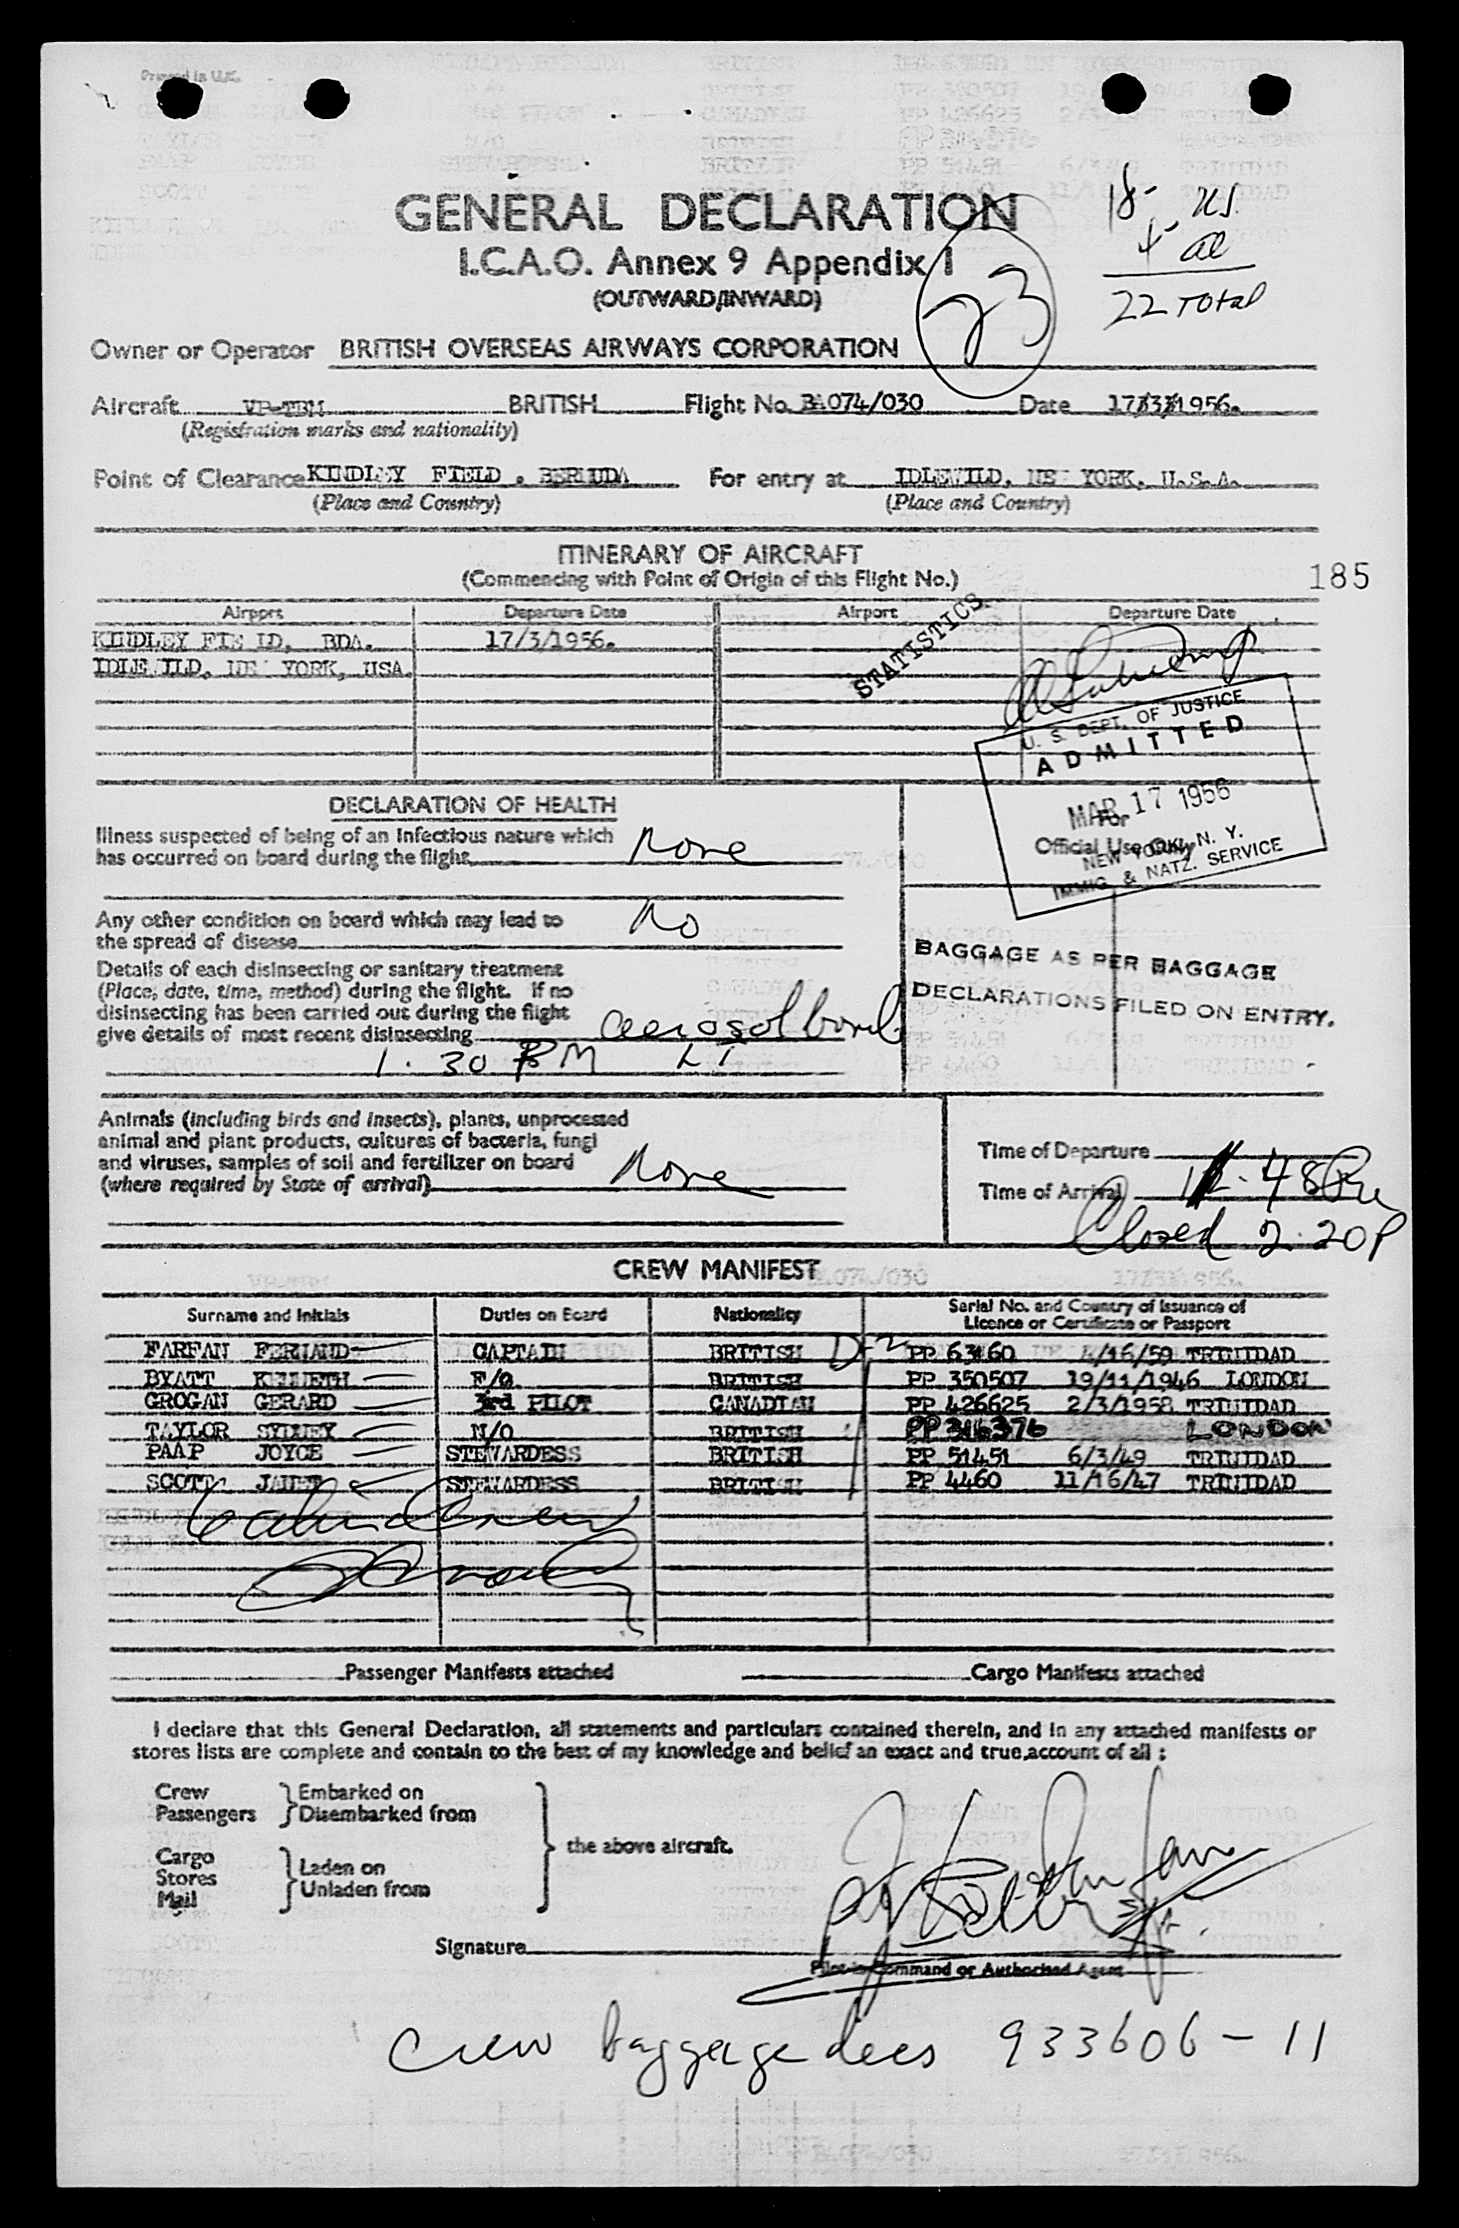 Printed in U.K.
18- US.
4- al
22 Total
GENERAL DECLARATION
I.C.A.O. Annex 9 Appendix I
(OUTWARD/INWARD)
23
Owner or Operator BRITISH OVERSEAS AIRWAYS CORPORATION
Aircraft VP-TBM BRITISH Flight No. BA074/030 Date 17/3/1956.
(Registration marks and nationality)
Point of Clearance KINDLEY FIELD . BERMUDA For entry at IDLEWILD, NEW YORK, U.S.A.
(Place and Country) (Place and Country)
ITINERARY OF AIRCRAFT
(Commencing with Point of Origin of this Flight No.)
185
Airport Departure Date Airport Departure Date
KINDLEY FIELD, BDA. 17/3/1956.
IDLEWILD, NEW YORK, USA.
STATISTICS
U. S. DEPT. OF JUSTICE
ADMITTED
MAR 17 1956
NEW YORK, N. Y.
IMMIG. & NATZ. SERVICE
For
Official Use Only
DECLARATION OF HEALTH
Illness suspected of being of an infectious nature which
has occurred on board during the flight None
Any other condition on board which may lead to
the spread of disease No
Details of each disinsecting or sanitary treatment
(Place, date, time, method) during the flight. If no
disinsecting has been carried out during the flight
give details of most recent disinsecting aerosol bomb
1.30 PM LT
BAGGAGE AS PER BAGGAGE
DECLARATIONS FILED ON ENTRY.
Animals (including birds and insects), plants, unprocessed
animal and plant products, cultures of bacteria, fungi
and viruses, samples of soil and fertilizer on board
(where required by State of arrival) None
Time of Departure
Time of Arrival 1.48 Pm
Closed 2.20P
CREW MANIFEST
Surname and Initials Duties on Board Nationality Serial No. and Country of Issuance of
Licence or Certificate or Passport
FARFAN FERNAND CAPTAIN BRITISH PP 63160 4/16/59 TRINIDAD
BYATT KENNETH F/O. BRITISH PP 350507 19/11/1946 LONDON
GROGAN GERARD 3rd PILOT CANADIAN PP 426625 2/3/1958 TRINIDAD
TAYLOR SYDNEY N/O BRITISH PP 316376 LONDON
PAAP JOYCE STEWARDESS BRITISH PP 51451 6/3/49 TRINIDAD
SCOTT JANET STEWARDESS BRITISH PP 4460 11/16/47 TRINIDAD
Passenger Manifests attached Cargo Manifests attached
I declare that this General Declaration, all statements and particulars contained therein, and in any attached manifests or
stores lists are complete and contain to the best of my knowledge and belief an exact and true account of all :
Crew Embarked on
Passengers Disembarked from
the above aircraft.
Cargo Laden on
Stores Unladen from
Mail
Signature
Pilot in Command or Authorised Agent
Crew baggage decs 933606-11